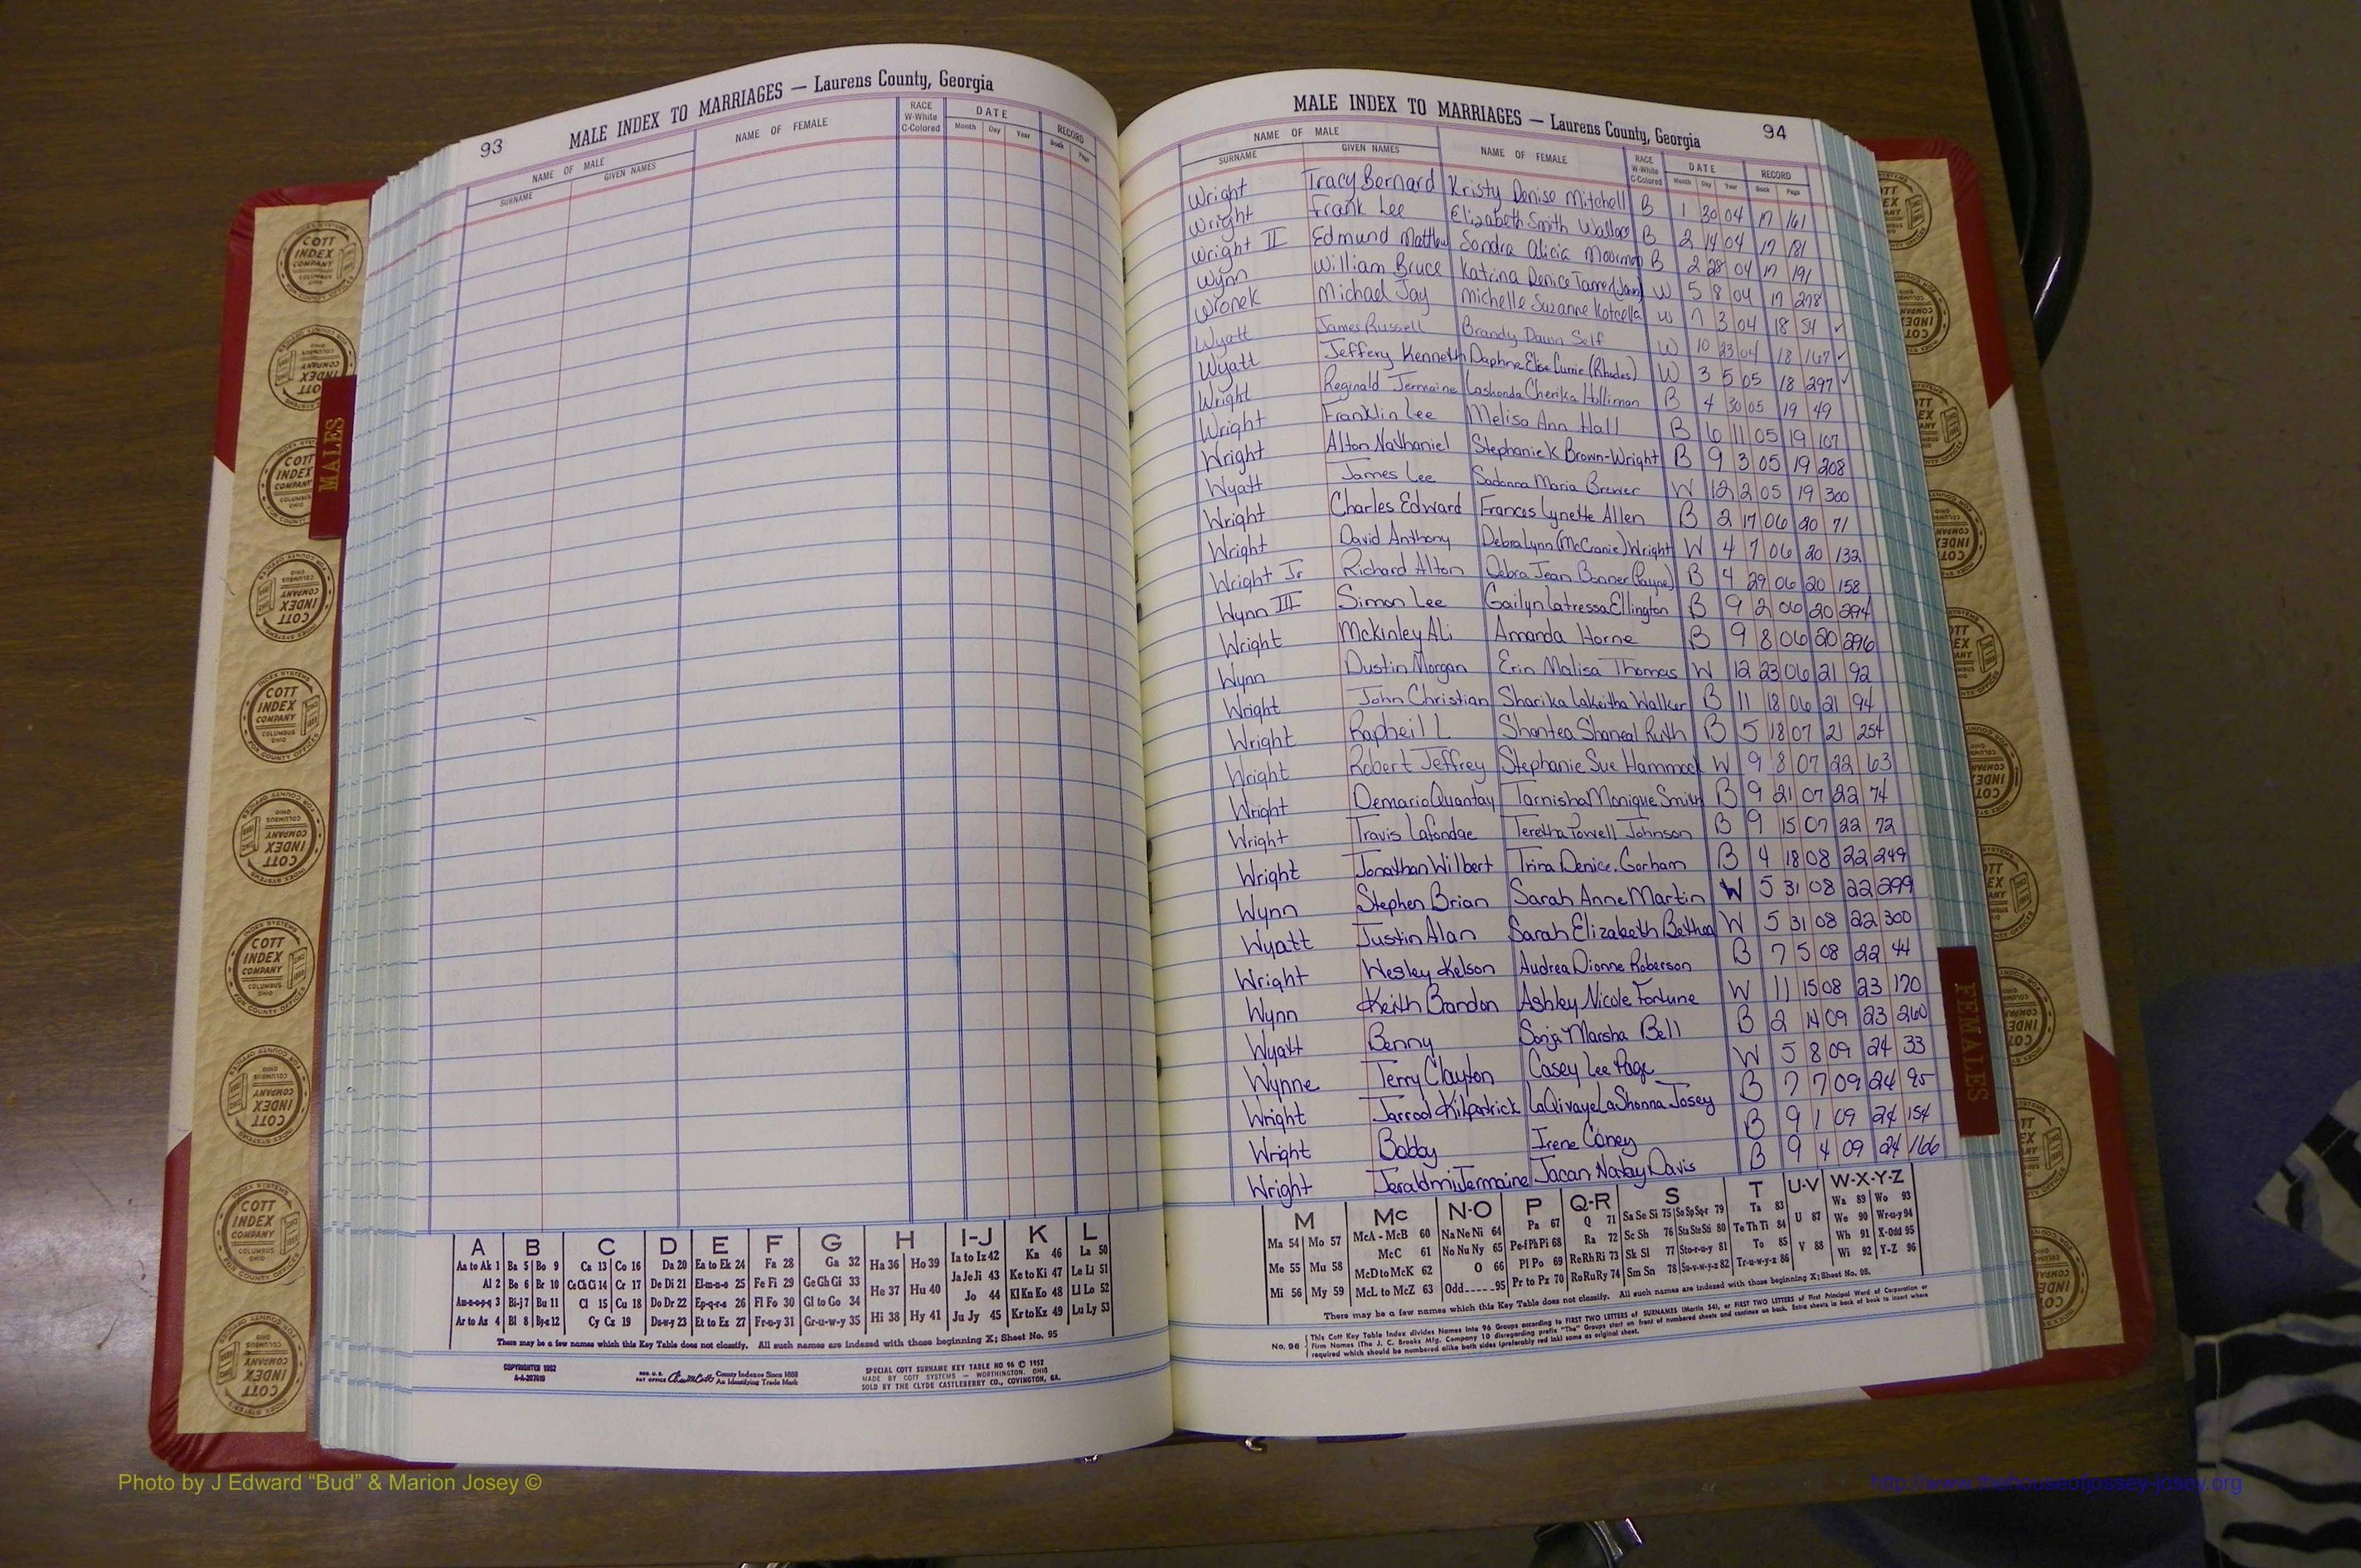 93
MALE INDEX TO MARRIAGES — Laurens County, Georgia
NAME OF MALE
SURNAME GIVEN NAMES
NAME OF FEMALE
RACE W-White C-Colored
DATE
Month Day Year
RECORD
Book Page
A B C D E F G H I-J K L
Aa to Ak 1 Ba 5 Bo 9 Ca 13 Co 16 Da 20 Ea to Ek 24 Fa 28 Ga 32 Ha 36 Ho 39 Ia to Iz 42 Ka 46 La 50
Al 2 Be 6 Br 10 Ce Ch Ci 14 Cr 17 De Di 21 El-m-n-o 25 Fe Fi 29 Ge Gh Gi 33 He 37 Hu 40 Ja Je Ji 43 Ke to Ki 47 Le Li 51
Am-n-o-p-q 3 Bi-j 7 Bu 11 Cl 15 Cu 18 Do Dr 22 Ep-q-r-s 26 Fl Fo 30 Gl to Go 34 Jo 44 Kl Kn Ko 48 Ll Lo 52
Ar to Az 4 Bl 8 By-z 12 Cy Cz 19 Du-w-y 23 Et to Ez 27 Fr-u-y 31 Gr-u-w-y 35 Hi 38 Hy 41 Ju Jy 45 Kr to Kz 49 Lu Ly 53
There may be a few names which this Key Table does not classify. All such names are indexed with those beginning X; Sheet No. 95
COPYRIGHTED 1952
County Indexes Since 1888
An Identifying Trade Mark
SPECIAL COTT SURNAME KEY TABLE NO 96 © 1952
MADE BY COTT SYSTEMS — WORTHINGTON, OHIO
SOLD BY THE CLYDE CASTLEBERRY CO., COVINGTON, GA.
MALE INDEX TO MARRIAGES — Laurens County, Georgia
94
NAME OF MALE
SURNAME GIVEN NAMES
NAME OF FEMALE
RACE W-White C-Colored
DATE
Month Day Year
RECORD
Book Page
Wright Tracy Bernard Kristy Denise Mitchell B 1 30 04 17 161
Wright Frank Lee Elizabeth Smith B 2 14 04 17 181
Wright II Edmund Matthew Sandra Alicia B 2 28 04 17 191
Wynn William Bruce Katrina Denice W 5 8 04 17 278
Wronek Michael Jay Michelle Suzanne W 7 3 04 18 54 ✓
Wyatt James Russell Brandy Dawn Self W 10 23 04 18 167 ✓
Wyatt Jeffery Kenneth Daphne Elise Currie (Rhodes) W 3 5 05 18 297 ✓
Wright Reginald Jermaine Lashonda Cherika Holliman B 4 30 05 19 49
Wright Franklin Lee Melisa Ann Hall B 6 11 05 19 107
Wright Alton Nathaniel Stephanie K Brown-Wright B 9 3 05 19 208
Wyatt James Lee Sadonna Maria Brewer W 12 2 05 19 300
Wright Charles Edward Frances Lynette Allen B 2 17 06 20 71
Wright David Anthony Debra Lynn (McCranie) Wright W 4 7 06 20 132
Wright Jr Richard Alton Debra Jean Bonner (Payne) B 4 29 06 20 158
Wynn III Simon Lee Gailyn Latressa Ellington B 9 2 06 20 294
Wright McKinley Ali Amanda Horne B 9 8 06 20 296
Wynn Dustin Morgan Erin Malisa Thomas W 12 23 06 21 92
Wright John Christian Sharika Lakeitha Walker B 11 18 06 21 94
Wright Rapheil L Shantea Shaneal Ruth B 5 18 07 21 254
Wright Robert Jeffrey Stephanie Sue Hammock W 9 8 07 22 63
Wright Demario Quantay Tarnisha Monique Smith B 9 21 07 22 74
Wright Travis Lafondae Teretha Powell Johnson B 9 15 07 22 72
Wright Jonathan Wilbert Trina Denice Gorham B 4 18 08 22 249
Wynn Stephen Brian Sarah Anne Martin W 5 31 08 22 299
Wyatt Justin Alan Sarah Elizabeth Bethea W 5 31 08 22 300
Wright Wesley Kelson Audrea Dionne Roberson B 7 5 08 22 44
Wynn Keith Brandon Ashley Nicole Fortune W 11 15 08 23 170
Wyatt Benny Sonja Marsha Bell B 2 14 09 23 260
Wynne Terry Clayton Casey Lee Page W 5 8 09 24 33
Wright Jarrod Kilpatrick LaQivaye LaShonna Josey B 7 7 09 24 95
Wright Bobby Irene Coney B 9 1 09 24 154
Wright Jeraldmi Jermaine Jacan Natay Davis B 9 4 09 24 166
M Mc N-O P Q-R S T U-V W-X-Y-Z
Ma 54 Mo 57 McA - McB 60 Na Ne Ni 64 Pa 67 Q 71 Sa Se Si 75 So Sp Sq-r 79 Ta 83 U 87 Wa 89 Wo 93
Me 55 Mu 58 McC 61 No Nu Ny 65 Pe-f Ph Pi 68 Ra 72 Sc Sh 76 Sta Ste Sti 80 Te Th Ti 84 We 90 Wr-u-y 94
McD to McK 62 O 66 Pl Po 69 Re Rh Ri 73 Sk Sl 77 Sto-r-u-y 81 To 85 V 88 Wh 91 X-Odd 95
Mi 56 My 59 McL to McZ 63 Odd 95 Pr to Pz 70 Ro Ru Ry 74 Sm Sn 78 Su-v-w-y-z 82 Tr-u-w-y-z 86 Wi 92 Y-Z 96
There may be a few names which this Key Table does not classify. All such names are indexed with those beginning X; Sheet No. 95.
No. 96
This Cott Key Table Index divides Names into 96 Groups according to FIRST TWO LETTERS of SURNAMES (Martin 54), or FIRST TWO LETTERS of First Principal Word of Corporation or
Firm Names (The J. C. Brooks Mfg. Company 10 disregarding prefix "The" Groups start on front of numbered sheets and continue on back. Extra sheets in back of book to insert where
required which should be numbered alike both sides (preferably red ink) same as original sheet.
MALES
FEMALES
COTT INDEX COMPANY
COLUMBUS OHIO
INDEX SYSTEMS
FOR COUNTY OFFICES
Photo by J Edward "Bud" & Marion Josey ©
http://www.thehouseofjossey-josey.org